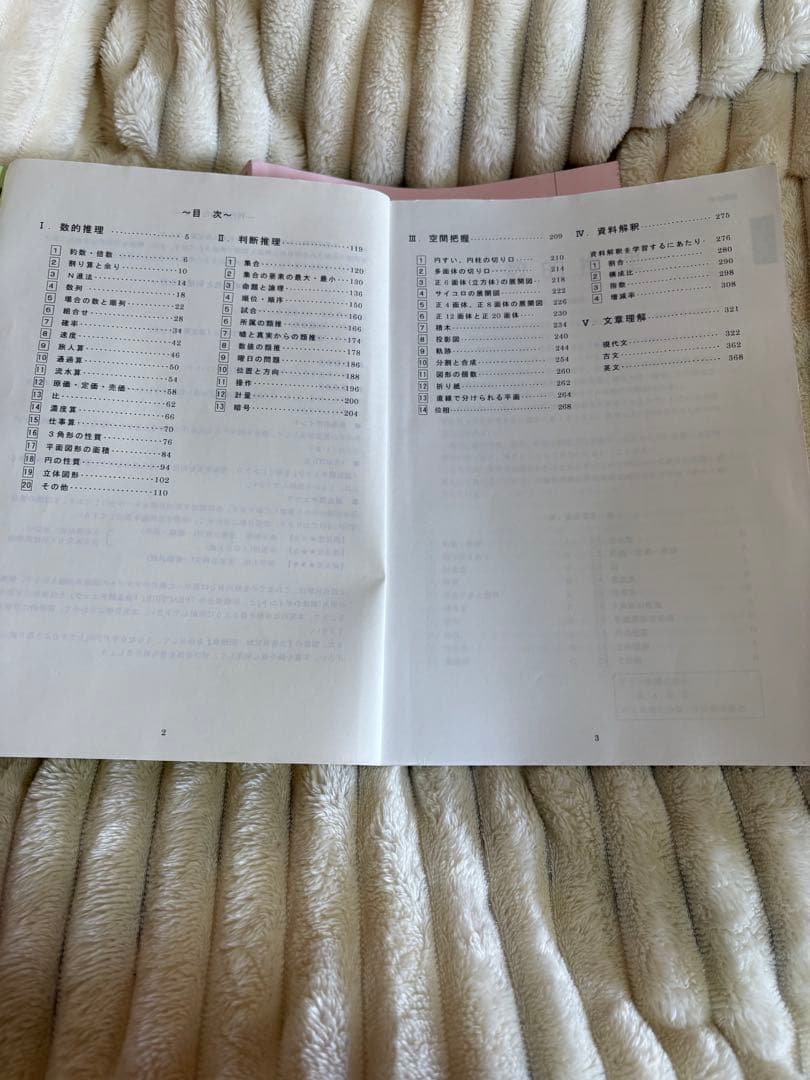 ～目 次～
Ⅰ．数的推理 ………… 5
1 約数・倍数 ………… 6
2 割り算と余り ………… 10
3 N進法 ………… 14
4 数列 ………… 18
5 場合の数と順列 ………… 22
6 組合せ ………… 28
7 確率 ………… 34
8 速度 ………… 42
9 旅人算 ………… 46
10 通過算 ………… 50
11 流水算 ………… 54
12 原価・定価・売価 ………… 58
13 比 ………… 62
14 濃度算 ………… 66
15 仕事算 ………… 70
16 3角形の性質 ………… 76
17 平面図形の面積 ………… 84
18 円の性質 ………… 94
19 立体図形 ………… 102
20 その他 ………… 110
Ⅱ．判断推理 ………… 119
1 集合 ………… 120
2 集合の要素の最大・最小 … 130
3 命題と論理 ………… 136
4 順位・順序 ………… 150
5 試合 ………… 160
6 所属の類推 ………… 166
7 嘘と真実からの類推 …… 174
8 数値の類推 ………… 178
9 曜日の問題 ………… 186
10 位置と方向 ………… 188
11 操作 ………… 196
12 計量 ………… 200
13 暗号 ………… 204
2
Ⅲ．空間把握 ………… 209
1 円すい、円柱の切り口 …… 210
2 多面体の切り口 ………… 214
3 正6面体(立方体)の展開図 ‥ 218
4 サイコロの展開図 ………… 222
5 正4面体、正8面体の展開図 226
6 正12面体と正20面体 ……… 230
7 積木 ………… 234
8 投影図 ………… 240
9 軌跡 ………… 244
10 分割と合成 ………… 254
11 図形の個数 ………… 260
12 折り紙 ………… 262
13 直線で分けられる平面 …… 264
14 位相 ………… 268
Ⅳ．資料解釈 ………… 275
資料解釈を学習するにあたり ‥ 276
1 割合 ………… 280
2 構成比 ………… 290
3 指数 ………… 298
4 増減率 ………… 308
Ⅴ．文章理解 ………… 321
現代文 ………… 322
古文 ………… 362
英文 ………… 368
3